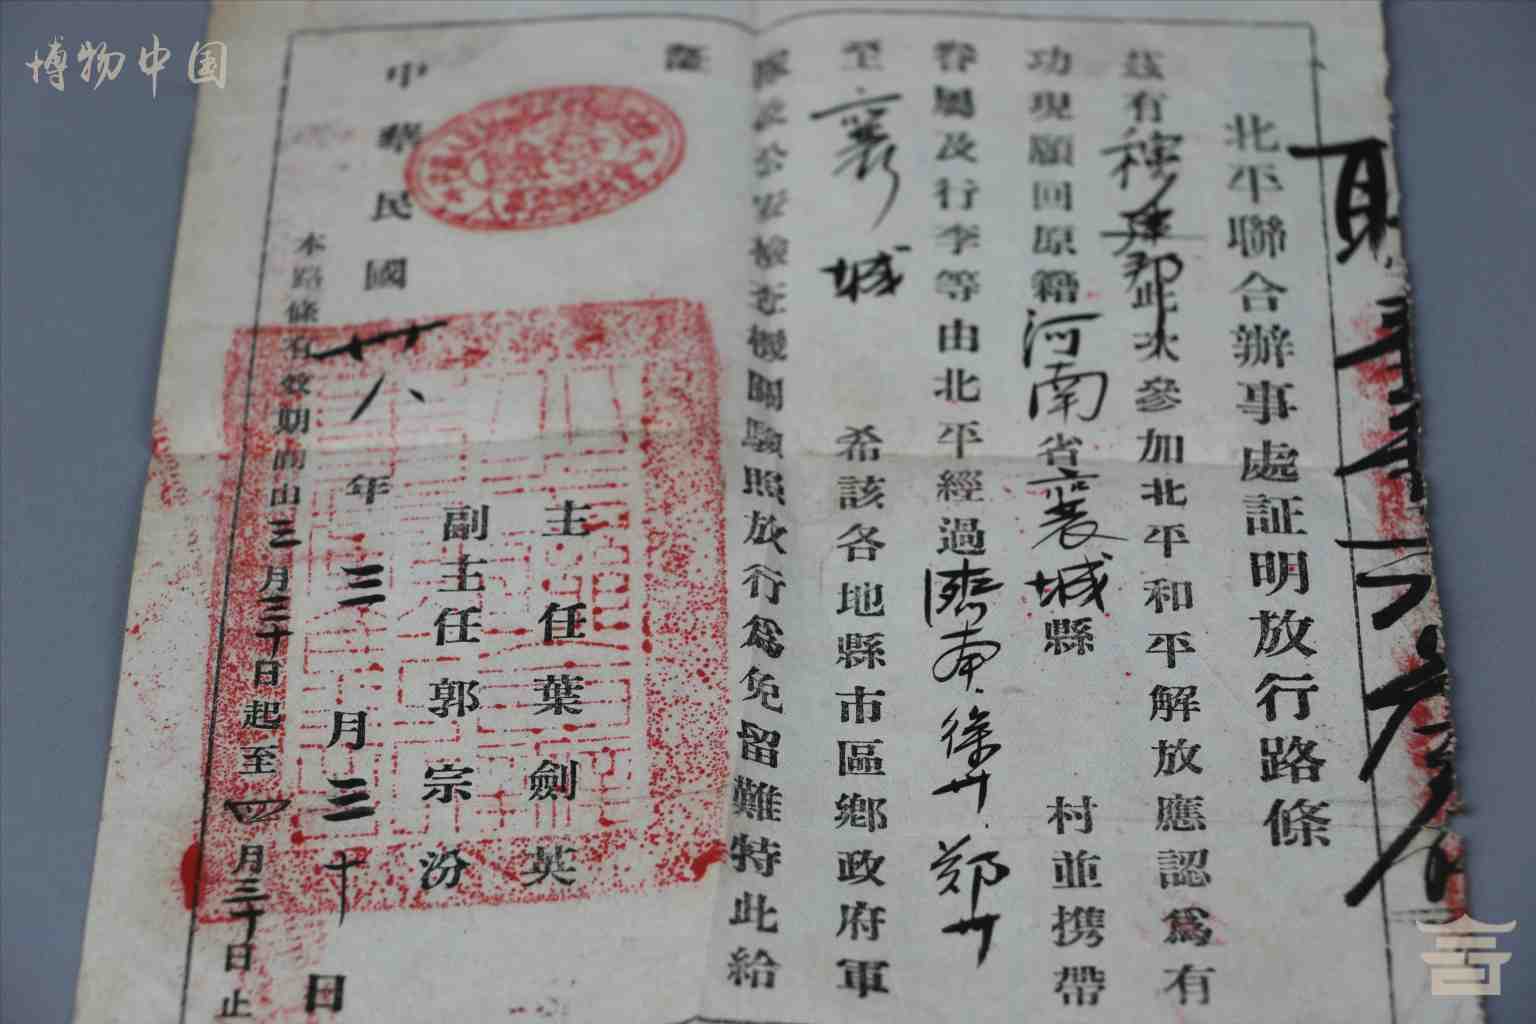 博物中国
北平聯合辦事處証明放行路條
茲有程建邦此次參加北平和平解放應認爲有
功現願回原籍河南省襄城縣 村並携帶
眷屬及行李等由北平經過濟南.徐州.鄭州
至襄城 希該各地縣市區鄉政府軍
隊及公安檢查機關驗照放行爲免留難特此給
證
主任葉劍英
副主任郭宗汾
中華民國廿八年三月三十日
本路條有效期間由三月三十日起至四月三十日止